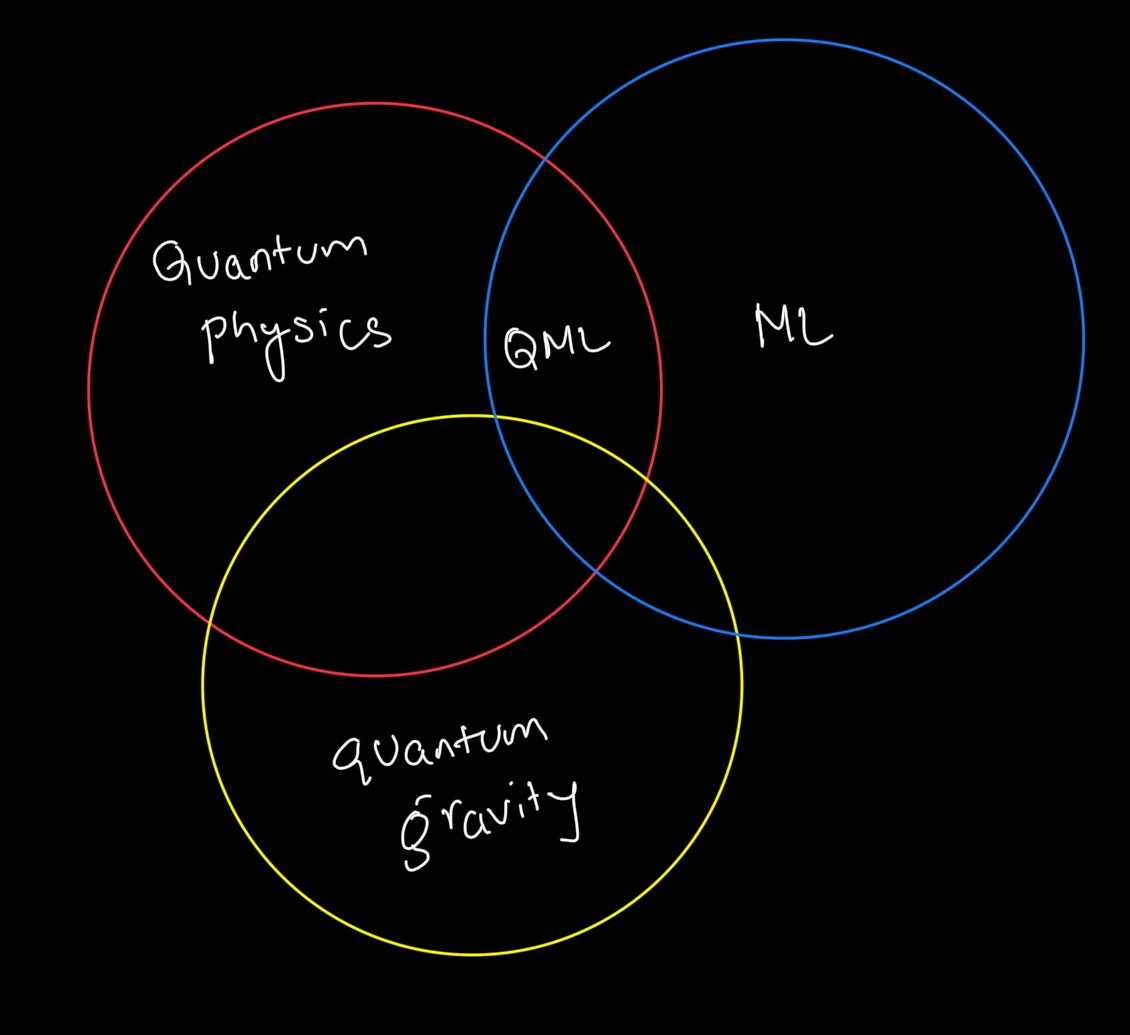 Quantum
physics
QML
ML
quantum
gravity